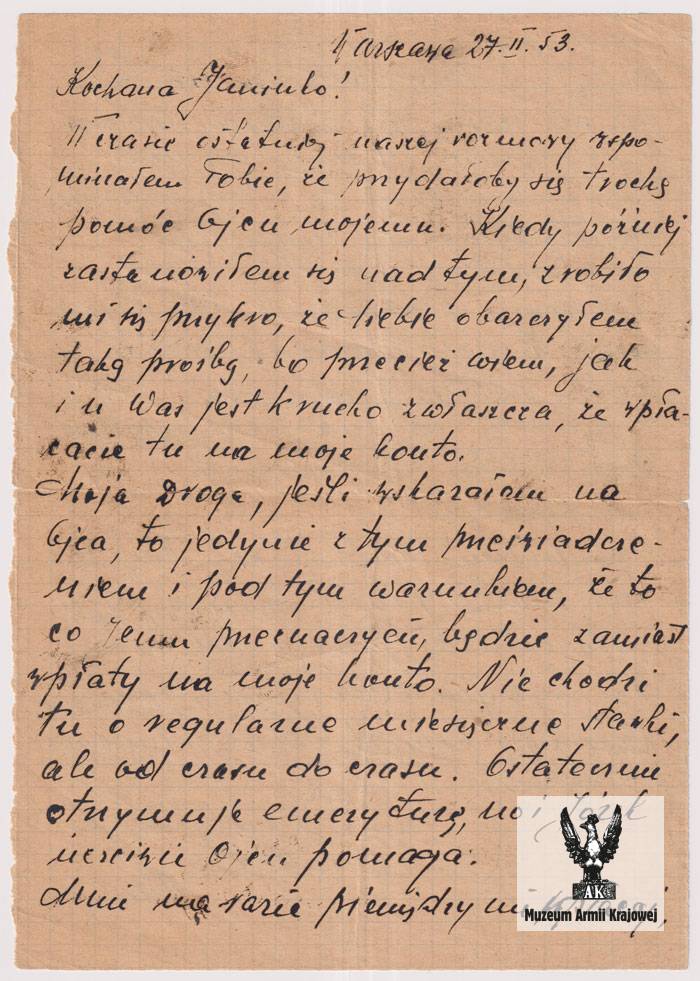 Warszawa 27.II.53.
Kochana Janinko!
W czasie ostatniej naszej rozmowy wspo-
minałem Tobie, że przydałoby się trochę
pomóc Ojcu mojemu. Kiedy później
zastanowiłem się nad tym, zrobiło
mi się przykro, że Ciebie obarczyłem
taką prośbą, bo przecież wiem, jak
i u Was jest krucho zwłaszcza, że wpła-
cacie tu na moje konto.
Moja Droga, jeśli wskazałem na
Ojca, to jedynie z tym przeświadcze-
niem i pod tym warunkiem, że to
co Jemu przeznaczycie, będzie zamiast
wpłaty na moje konto. Nie chodzi
tu o regularne miesięczne stawki,
ale od czasu do czasu. Ostatecznie
otrzymuje emeryturę, no i Józek
Ojcu pomaga.
Mnie na razie pieniędzy
AK
Muzeum Armii Krajowej